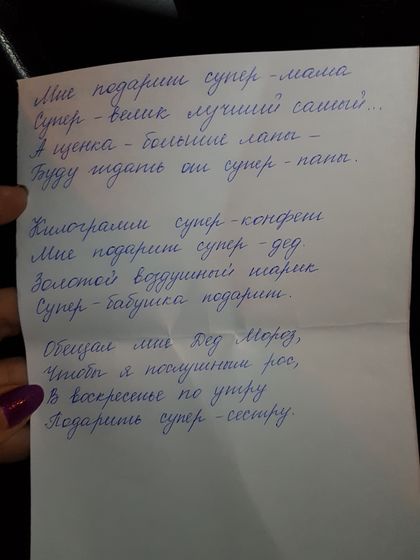 Мне подарит супер-мама
Супер-велик лучший самый...
А щенка-большие лапы-
Буду ждать от супер-папы.
Килограмм супер-конфет
Мне подарит супер-дед.
Золотой воздушный шарик
Супер-бабушка подарит.
Обещал мне Дед Мороз,
Чтобы я послушным рос,
В воскресенье по утру
Подарить супер-сестру.